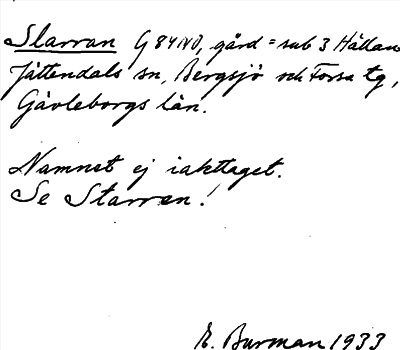 Slarran G 84 NO, gård = sub 3 Hållan
Jättendals sn, Bergsjö och Forsa tg,
Gävleborgs län.
Namnet ej iakttaget.
Se Starren!
E. Burman 1933